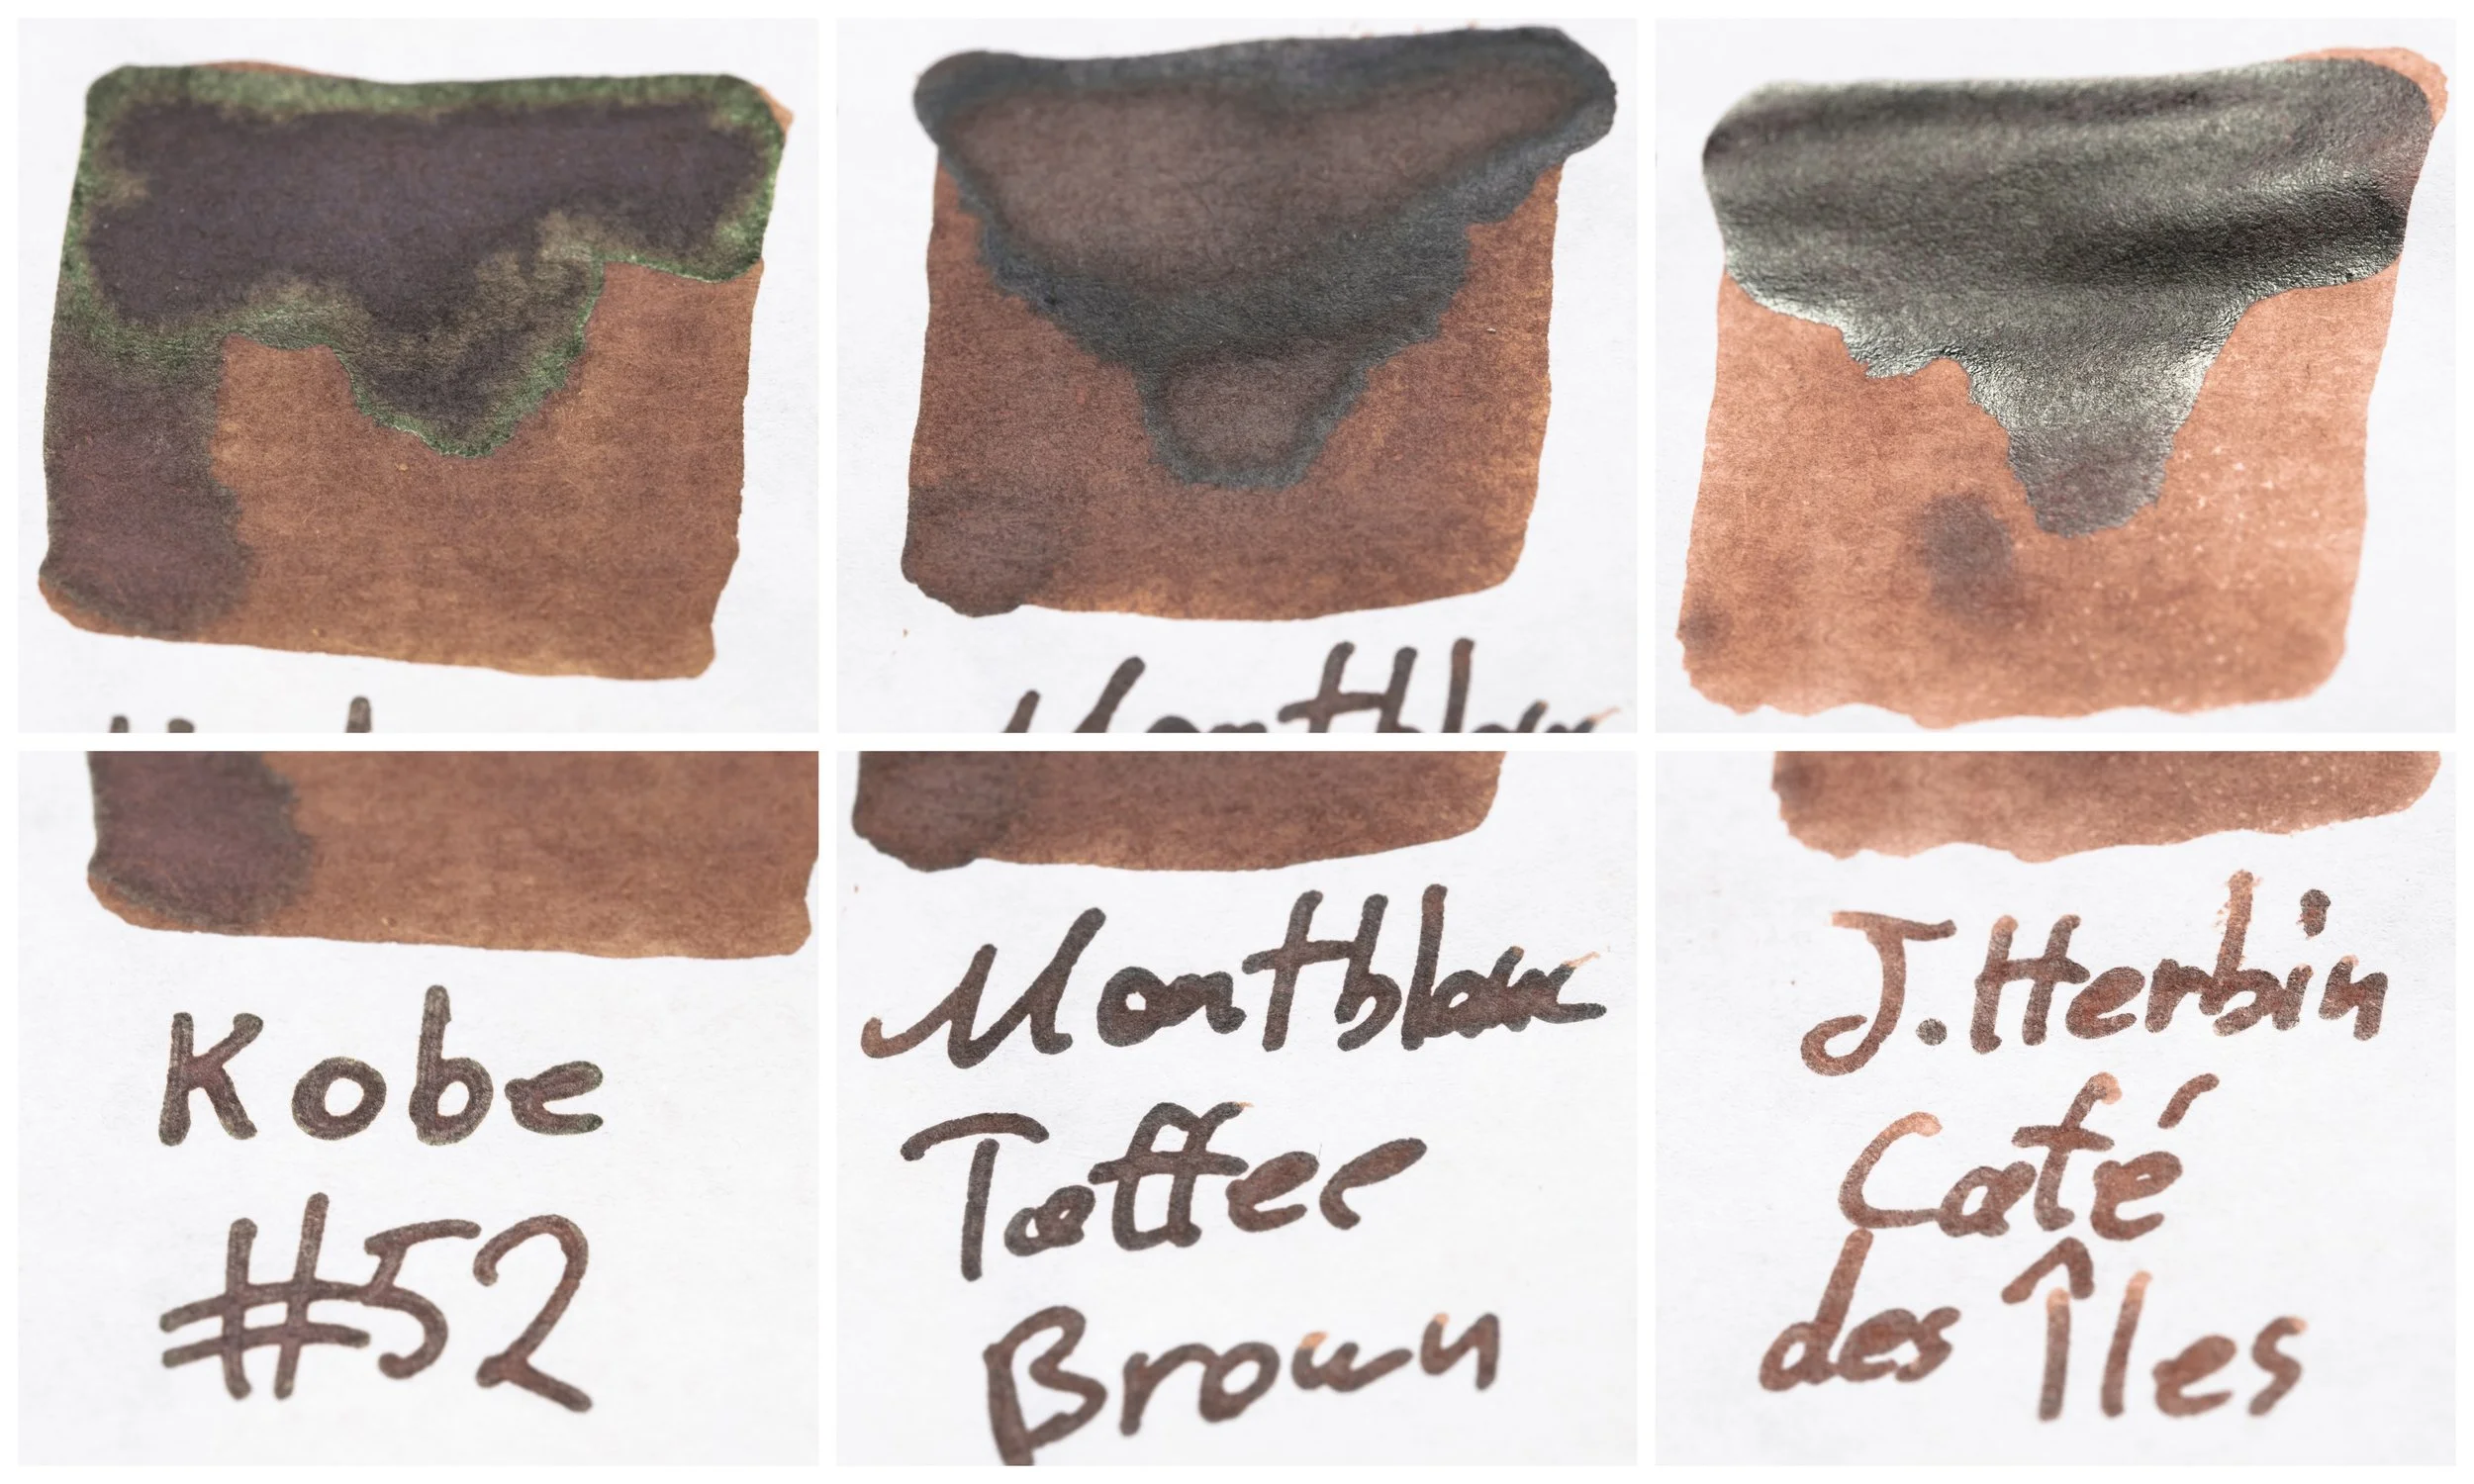 Montblanc
Kobe
#52
Montblanc
Toffee
Brown
J.Herbin
Café
des Îles